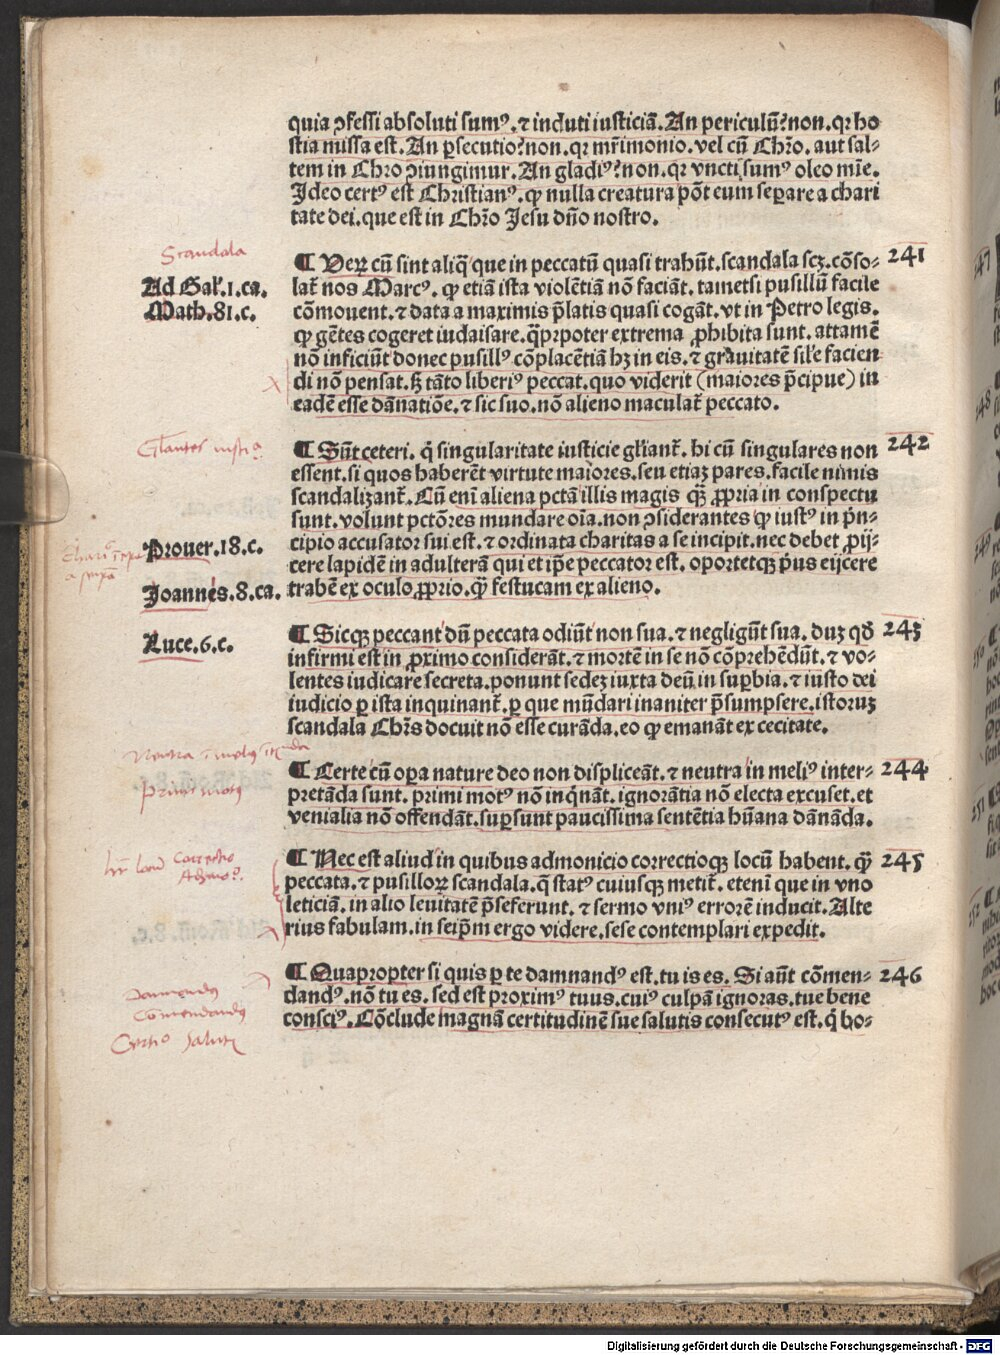 quia ɔfessi absoluti sumꝰ. ⁊ induti iusticiā. An periculū? non. qꝛ ho
stia missa est. An ꝑsecutio? non. qꝛ mr̄imonio. vel cū Chr̄o. aut sal-
tem in Chr̄o ɔiungimur. An gladiꝰ? non. qꝛ vncti sumꝰ oleo mīe.
Ideo certꝰ est Christianꝰ. ꝙ nulla creatura pōt eum seꝑare a chari
tate dei. que est in Chr̄o Jesu dn̄o nostro.
Scandala
¶ Veꝝ cū sint aliq̄ que in peccatū quasi trahūt. scandala scꝫ. cōso- 241
Ad Gal'. 1. ca.
lat̄ nos Marcꝰ. ꝙ etiā ista violētiā nō faciāt. tametsi pusillū facile
Math. 81. c.
cōmouent. ⁊ data a maximis p̄latis quasi cogāt. vt in Petro legis.
ꝙ gētes cogeret iudaisare. q̄pꝛpoter extrema ꝓhibita sunt. attamē
nō inficiūt donec pusillꝰ cōplacētiā hꝫ in eis. ⁊ grauitatē sil'e facien
di nō pensat. sꝫ tāto liberiꝰ peccat. quo viderit (maiores p̄cipue) in
eadē esse dānatiōe. ⁊ sic suo. nō alieno maculat̄ peccato.
¶ Sūt ceteri. q̇ singularitate iusticie gl'iant̄. hi cū singulares non 242
essent. si quos haberēt virtute maiores. seu etiaꝫ pares. facile nimis
scandalizant̄. Cū eni aliena pctā illis magis qꝫ̄ ꝓpria in conspectu
sunt. volunt pctōres mundare oīa. non ɔsiderantes ꝙ iustꝰ in pͥn-
Prouer. 18. c.
cipio accusator sui est. ⁊ ordinata charitas a se incipit. nec debet ꝓij-
cere lapidē in adulterā qui et ip̄e peccator est. oportetqꝫ pͥus eijcere
Joannes. 8. ca.
trabē ex oculo ꝓprio. qꝫ̄ festucam ex alieno.
¶ Sicqꝫ peccant dū peccata odiūt non sua. ⁊ negligūt sua. duꝫ qđ 243
Luce. 6. c.
infirmi est in ꝓximo considerāt. ⁊ mortē in se nō cōprehēdūt. ⁊ vo-
lentes iudicare secreta. ponunt sedeꝫ iuxta deū in suꝑbia. ⁊ iusto dei
iudicio ꝑ ista inquinant̄. ꝑ que mūdari inaniter p̄sumpsere. istoruꝫ
scandala Chr̄s docuit nō esse curāda. eo ꝙ emanāt ex cecitate.
¶ Certe cū oꝑa nature deo non displiceāt. ⁊ neutra in meliꝰ inter- 244
Primi motꝰ
pretāda sunt. primi motꝰ nō inqͥnāt. ignorātia nō electa excuset. et
venialia nō offendāt. suꝑsunt paucissima sentētia hūana dānāda.
¶ Nec est aliud in quibus admonicio correctioqꝫ locū habent. qꝫ̄ 245
Correctio
peccata. ⁊ pusilloꝝ scandala. q̄ statꝰ cuiusqꝫ metit̄. eteni que in vno
leticiā. in alio leuitatē p̄seferunt. ⁊ sermo vniꝰ errorē inducit. Alte
rius fabulam. in seip̄m ergo videre. sese contemplari expedit.
¶ Quapropter si quis ꝑ te damnandꝰ est. tu is es. Si aūt cōmen- 246
Damnandꝰ
dandꝰ. nō tu es. sed est proximꝰ tuus. cuiꝰ culpā ignoras. tue bene
Comendandꝰ
consciꝰ. Cōclude magnā certitudinē sue salutis consecutꝰ est. q̇ ho-
Digitalisierung gefördert durch die Deutsche Forschungsgemeinschaft - DFG